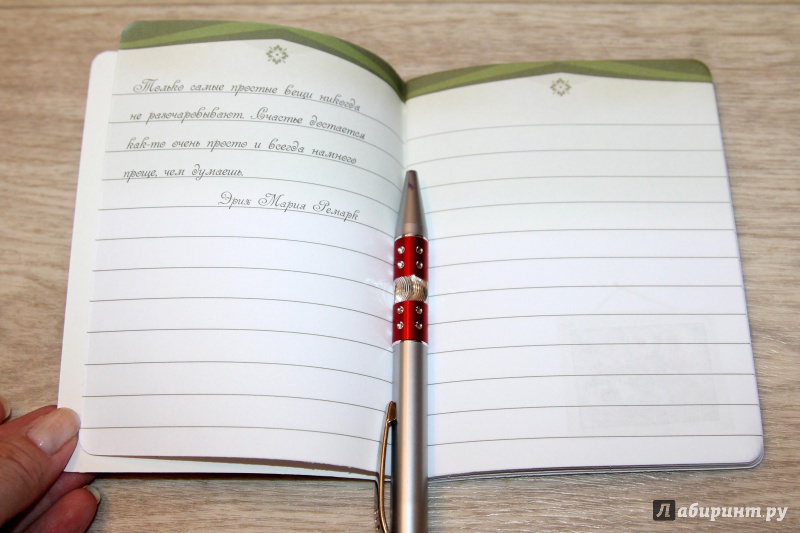 Только самые простые вещи никогда
не разочаровывают. Счастье достается
как-то очень просто и всегда намного
проще, чем думаешь.
Эрих Мария Ремарк
Лабиринт.ру